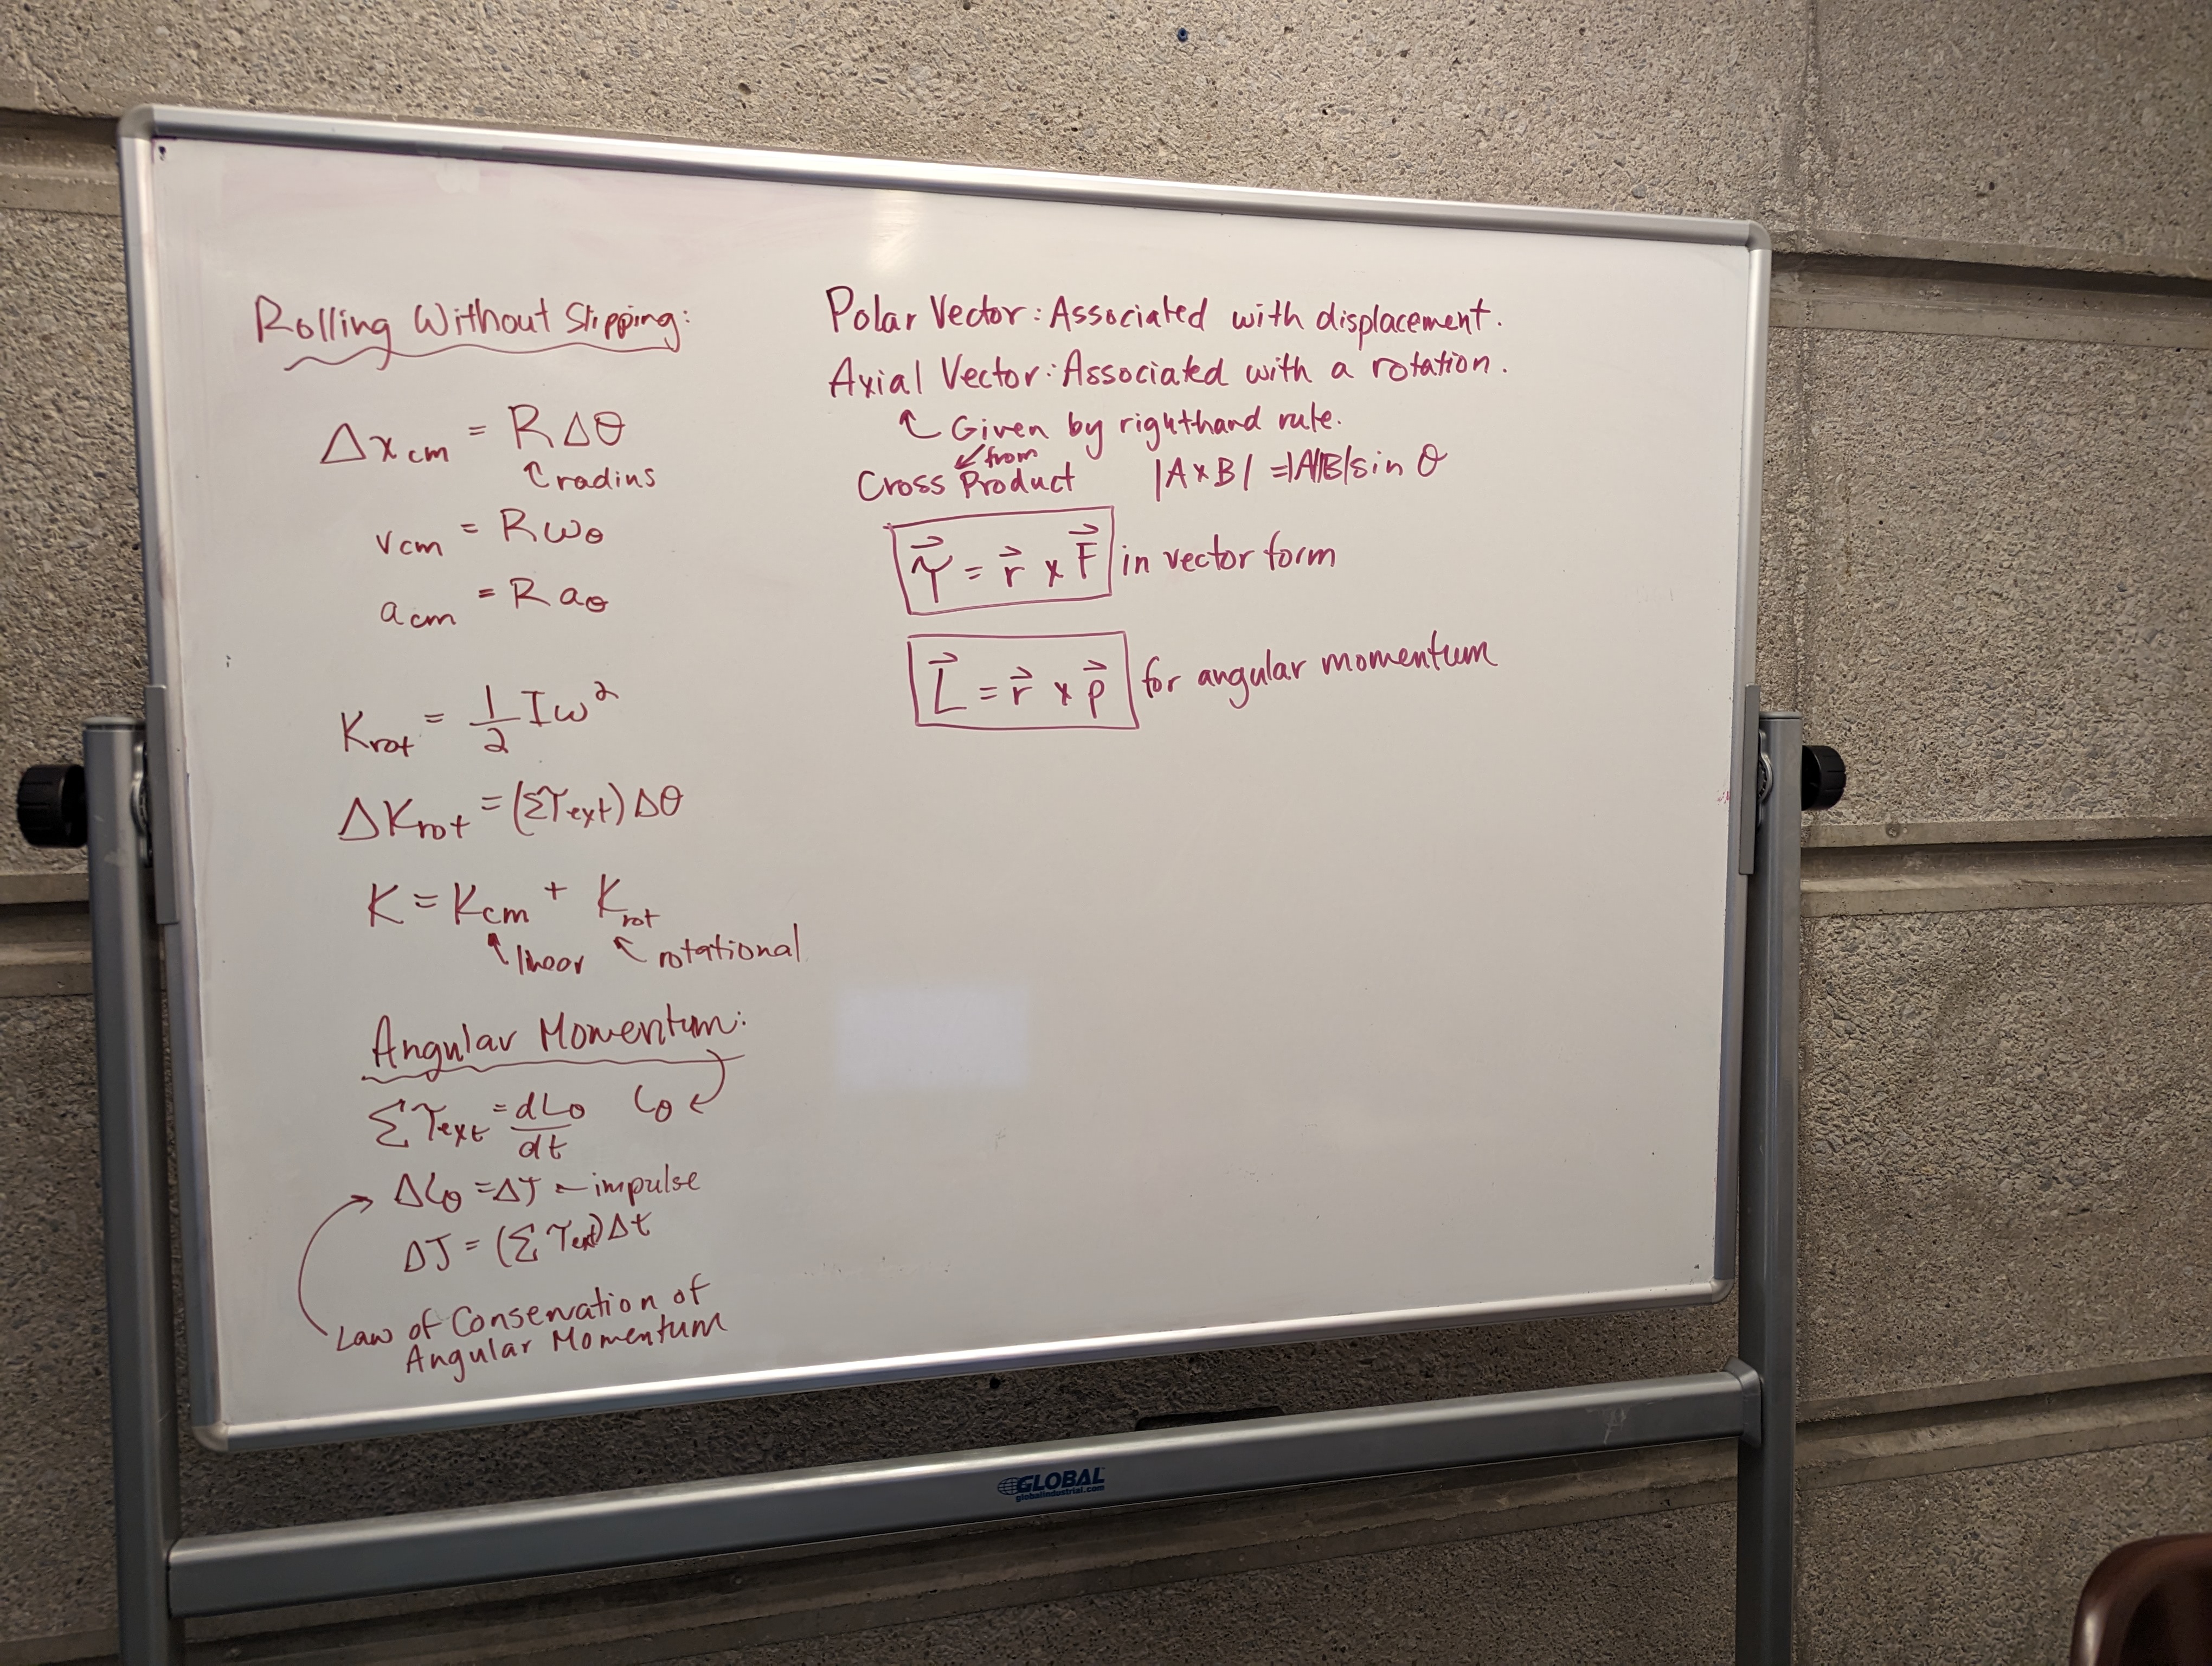 Rolling Without Slipping:
Δx cm = RΔθ
↑ radius
v cm = Rωθ
a cm = R aθ
Krot = 1/2 Iω²
ΔKrot = (Στext)Δθ
K = Kcm + Krot
↑ linear ↑ rotational
Angular Momentum:
Στext = dLθ/dt Lθ
ΔLθ = ΔJ ← impulse
ΔJ = (Στext)Δt
Law of Conservation of
Angular Momentum
Polar Vector: Associated with displacement.
Axial Vector: Associated with a rotation.
↑ Given by righthand rule.
↙ from
Cross Product |A×B| = |A||B|sin θ
τ⃗ = r⃗ × F⃗ in vector form
L⃗ = r⃗ × p⃗ for angular momentum
GLOBAL
globalindustrial.com